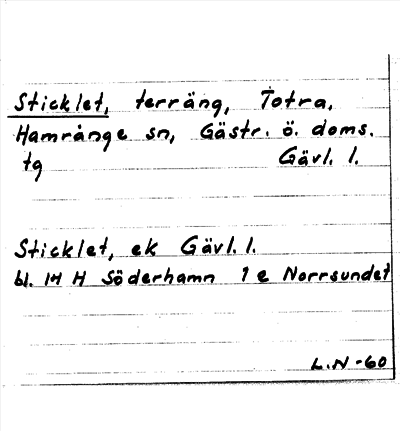 Sticklet, terräng, Totra,
Hamrånge sn, Gästr. ö. doms.
tg Gävl. l.
Sticklet, ek Gävl. l.
bl. 14 H Söderhamn 1 e Norrsundet
L.N -60